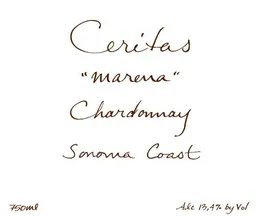 Ceritas
"marena"
Chardonnay
Sonoma Coast
750ml Alc 13,4% by Vol